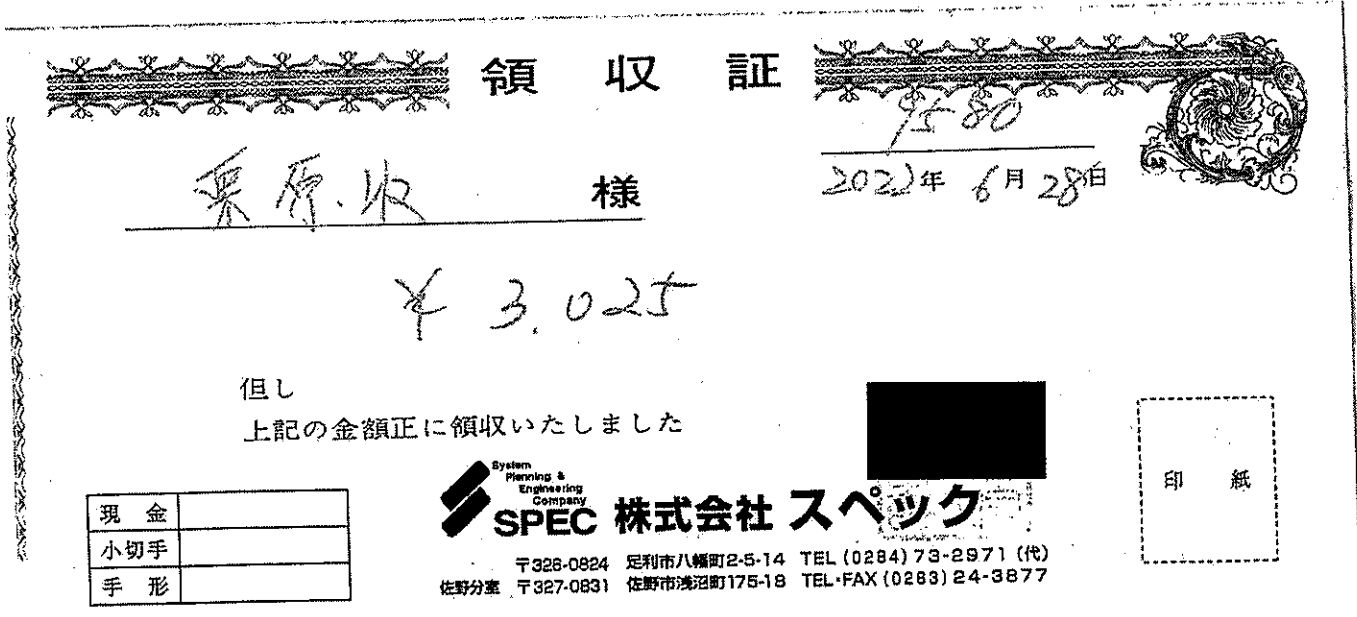 領収証
9580
栗原.収 様
2022年 6月 28日
¥ 3.025
但し
上記の金額正に領収いたしました
印紙
現金
小切手
手形
System
Planning &
Engineering
Company
SPEC 株式会社 スペック
〒326-0824 足利市八幡町2-5-14 TEL (0284) 73-2971 (代)
佐野分室 〒327-0831 佐野市浅沼町175-18 TEL・FAX (0283) 24-3877